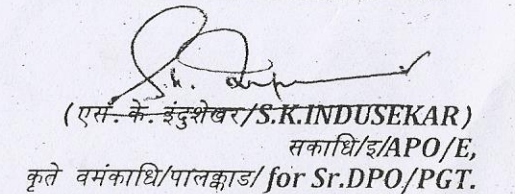 (एस. के. इंदुशेखर/S.K.INDUSEKAR)
सकाधि/इ/APO/E,
कृते वमंकाधि/पालक्काड/ for Sr.DPO/PGT.